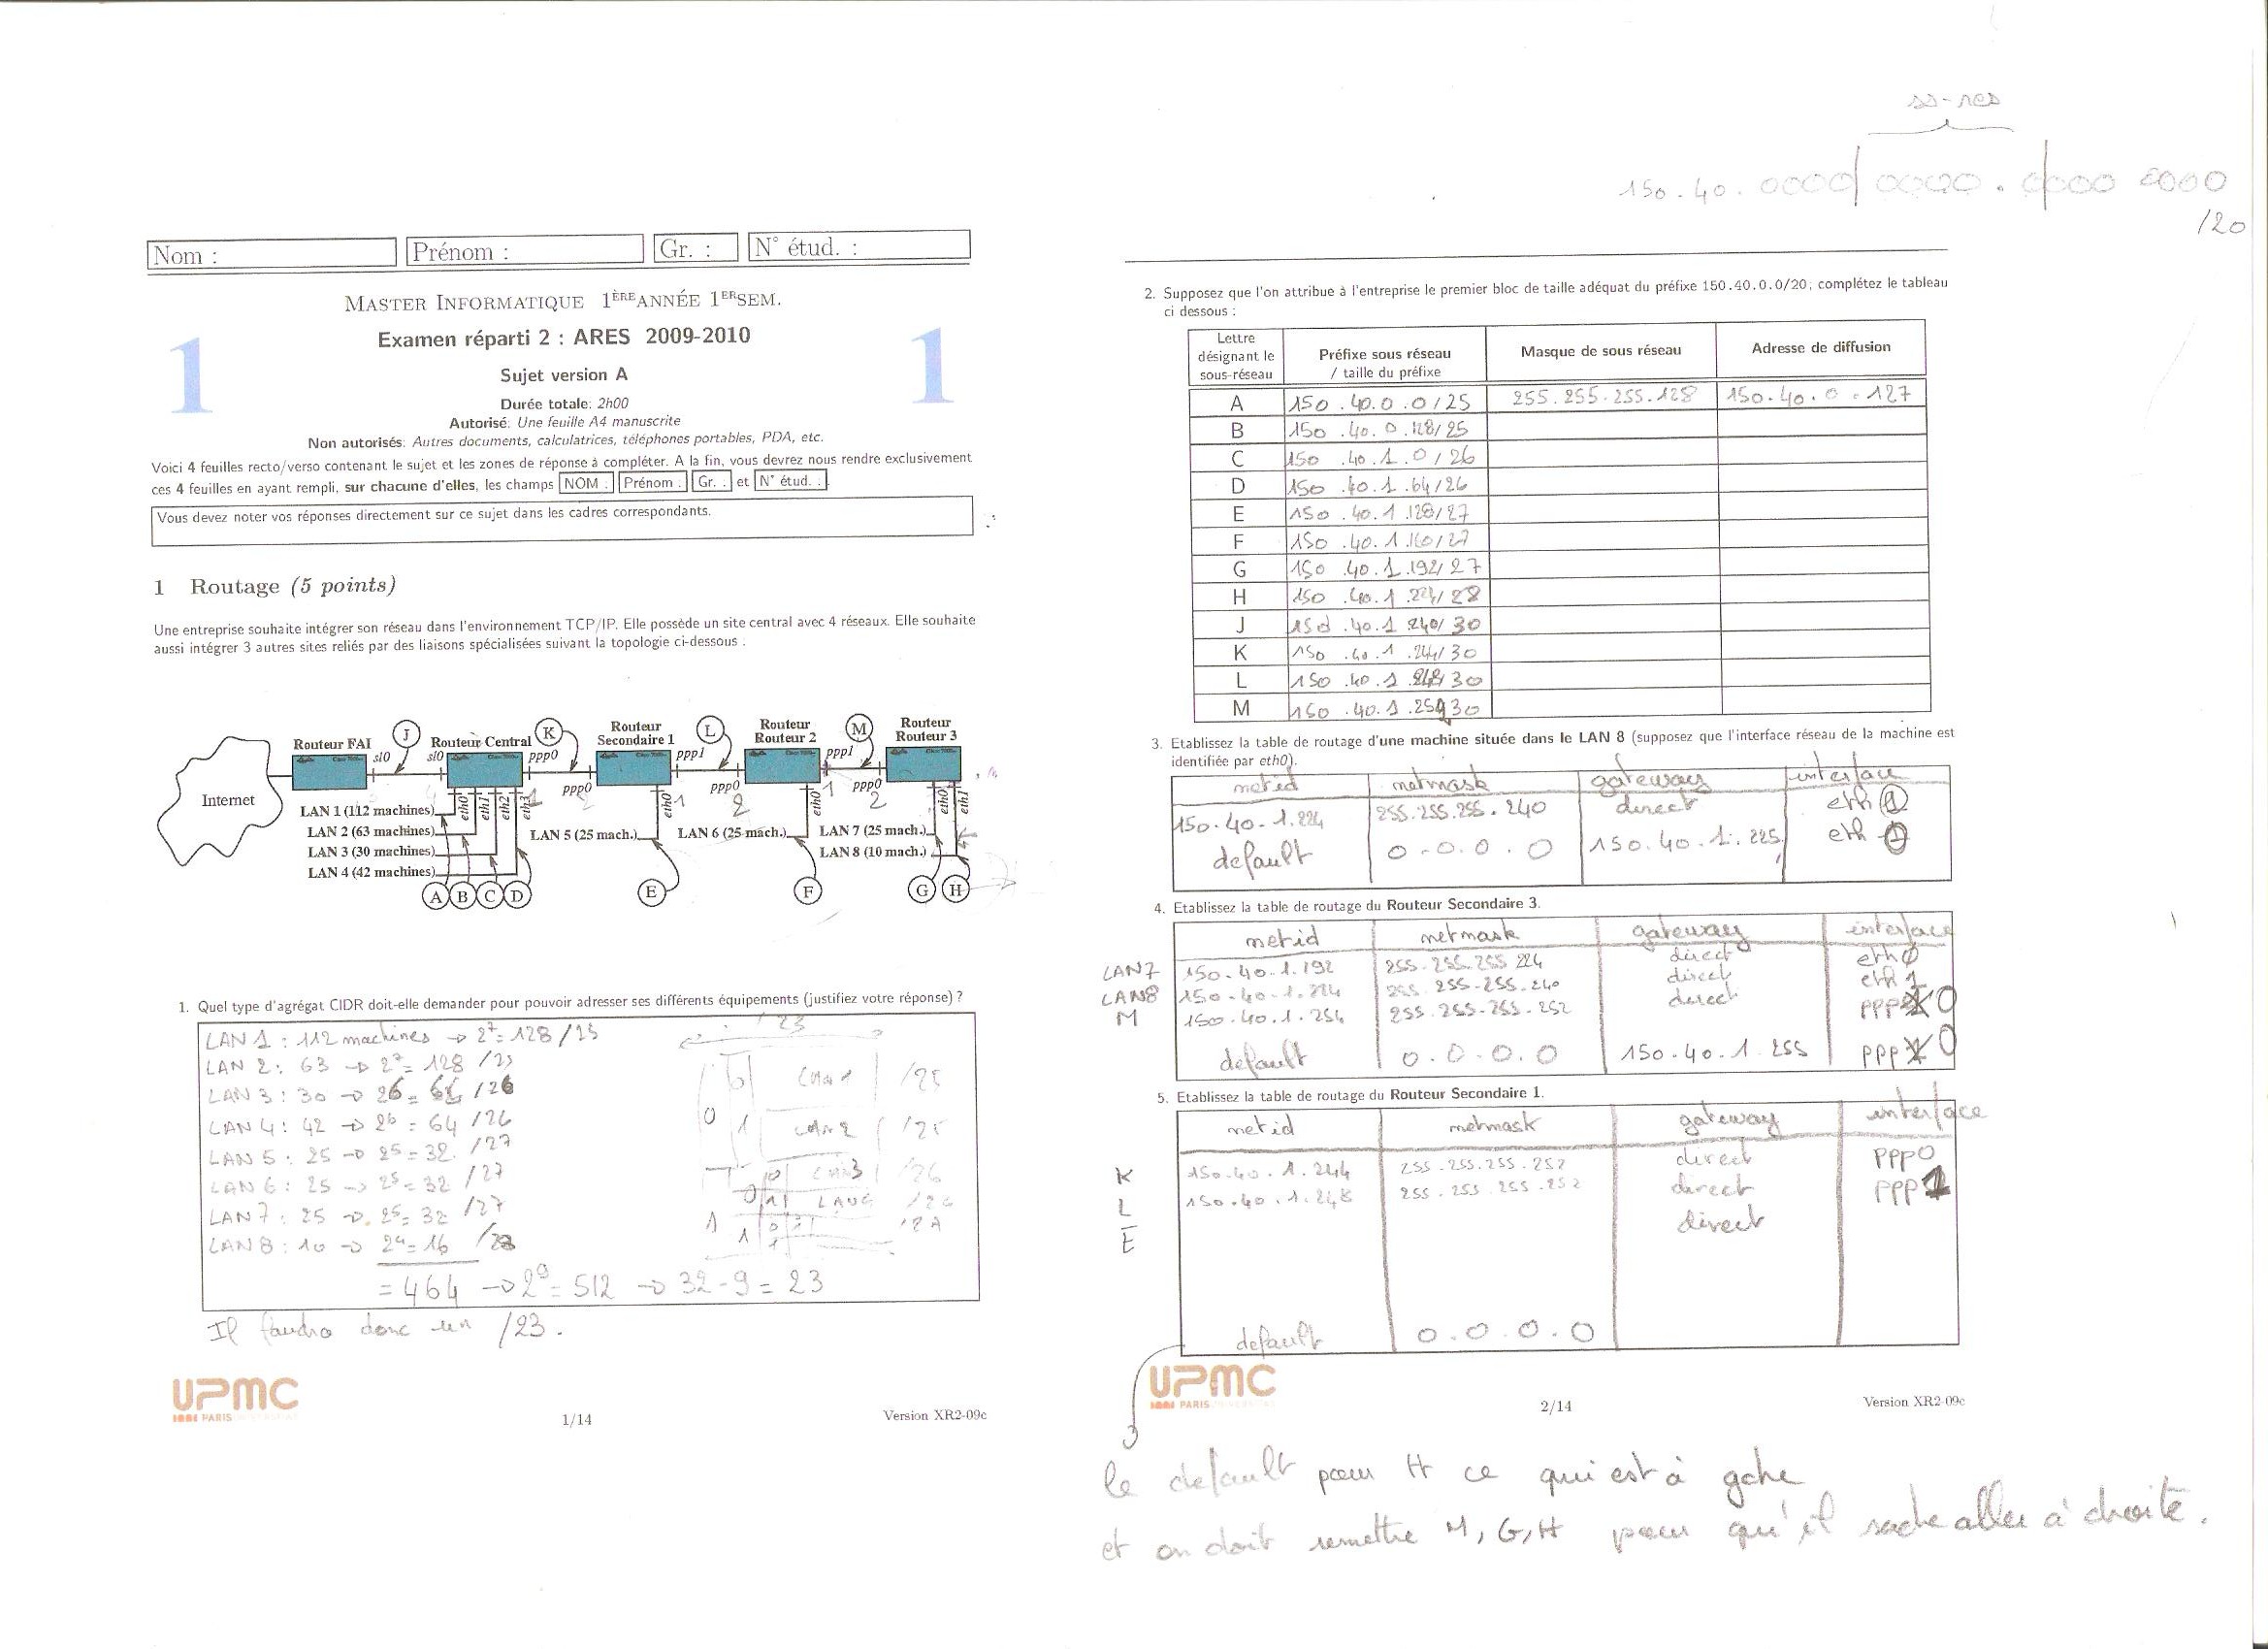 Nom :
Prénom :
Gr. :
N° étud. :
MASTER INFORMATIQUE 1ÈREANNÉE 1ERSEM.
1
Examen réparti 2 : ARES 2009-2010
1
Sujet version A
Durée totale: 2h00
Autorisé: Une feuille A4 manuscrite
Non autorisés: Autres documents, calculatrices, téléphones portables, PDA, etc.
Voici 4 feuilles recto/verso contenant le sujet et les zones de réponse à compléter. A la fin, vous devrez nous rendre exclusivement
ces 4 feuilles en ayant rempli, sur chacune d'elles, les champs NOM : Prénom : Gr. : et N° étud. : .
Vous devez noter vos réponses directement sur ce sujet dans les cadres correspondants.
1 Routage (5 points)
Une entreprise souhaite intégrer son réseau dans l'environnement TCP/IP. Elle possède un site central avec 4 réseaux. Elle souhaite
aussi intégrer 3 autres sites reliés par des liaisons spécialisées suivant la topologie ci-dessous :
Internet
Routeur FAI
sl0
J
Routeur Central
sl0
ppp0
K
Routeur
Secondaire 1
ppp0
2
ppp1
L
Routeur
Routeur 2
ppp0
2
ppp1
1
M
Routeur
Routeur 3
ppp0
2
eth0
eth1
eth2
eth3
1
eth0
1
eth0
1
eth0
eth1
LAN 1 (112 machines)
LAN 2 (63 machines)
LAN 3 (30 machines)
LAN 4 (42 machines)
LAN 5 (25 mach.)
LAN 6 (25 mach.)
LAN 7 (25 mach.)
LAN 8 (10 mach.)
A
B
C
D
E
F
G
H
1. Quel type d'agrégat CIDR doit-elle demander pour pouvoir adresser ses différents équipements (justifiez votre réponse) ?
LAN 1 : 112 machines → 2^7 = 128 /25
LAN 2 : 63 → 2^7 = 128 /25
LAN 3 : 30 → 26 = 64 /26
LAN 4 : 42 → 2^6 = 64 /26
LAN 5 : 25 → 2^5 = 32 /27
LAN 6 : 25 → 2^5 = 32 /27
LAN 7 : 25 → 2^5 = 32 /27
LAN 8 : 10 → 2^4 = 16 /28
= 464 → 2^9 = 512 → 32 - 9 = 23
/23
0
0
LAN 1
/25
1
LAN 2
/25
1
0
0
LAN3
/26
1
/26
1
Il faudra donc un /23.
UPMC
PARIS
1/14
Version XR2-09c
ss-res
150.40.0000|0000.0|000 0000
/20
2. Supposez que l'on attribue à l'entreprise le premier bloc de taille adéquat du préfixe 150.40.0.0/20; complétez le tableau
ci dessous :
Lettre désignant le sous-réseau
Préfixe sous réseau / taille du préfixe
Masque de sous réseau
Adresse de diffusion
A 150.40.0.0/25 255.255.255.128 150.40.0.127
B 150.40.0.128/25
C 150.40.1.0/26
D 150.40.1.64/26
E 150.40.1.128/27
F 150.40.1.160/27
G 150.40.1.192/27
H 150.40.1.224/28
J 150.40.1.240/30
K 150.40.1.244/30
L 150.40.1.248/30
M 150.40.1.254/30
3. Etablissez la table de routage d'une machine située dans le LAN 8 (supposez que l'interface réseau de la machine est
identifiée par eth0).
netid netmask gateway interface
150.40.1.224 255.255.255.240 direct eth0
default 0.0.0.0 150.40.1.225 eth0
4. Etablissez la table de routage du Routeur Secondaire 3.
netid netmask gateway interface
LAN7 150.40.1.192 255.255.255 224 direct eth0
LAN8 150.40.1.224 255.255.255.240 direct eth1
M 150.40.1.254 255.255.255.252 direct ppp0
default 0.0.0.0 150.40.1.255 ppp0
5. Etablissez la table de routage du Routeur Secondaire 1.
netid netmask gateway interface
K 150.40.1.244 255.255.255.252 direct ppp0
L 150.40.1.248 255.255.255.252 direct ppp1
E direct
default 0.0.0.0
UPMC
PARIS
2/14
Version XR2-09c
le default pour H ce qui est à gche
et on doit remettre M, G, H pour qu'il sache aller à droite.